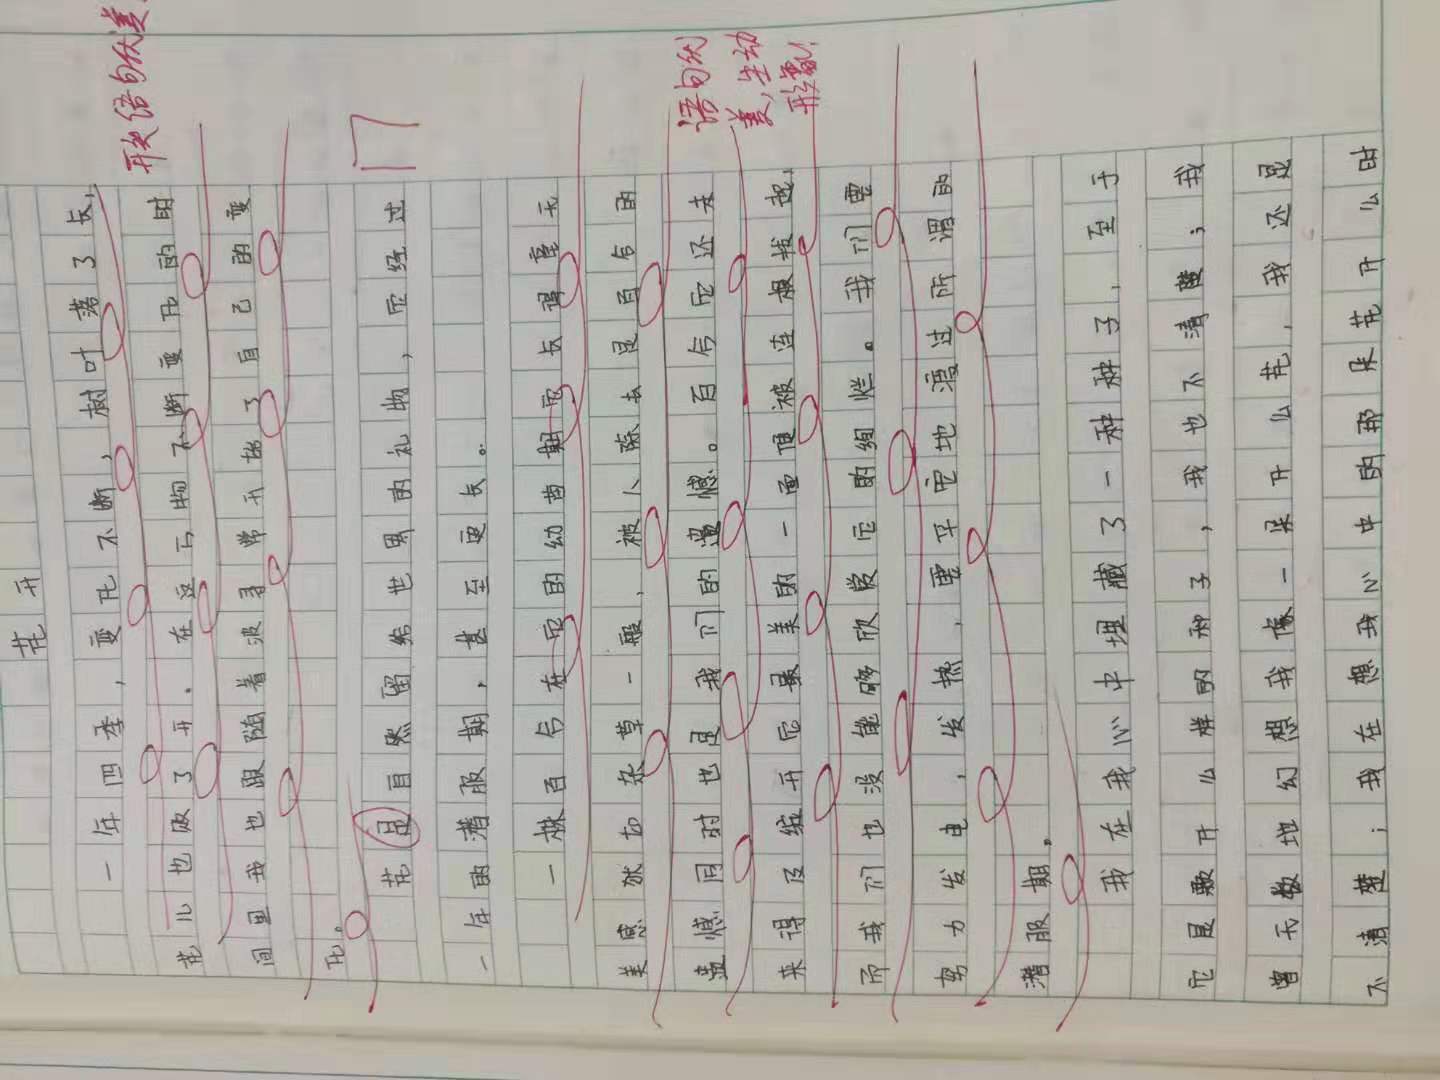 花开
一年四季，变化不断，树叶落了长，
花儿也败了开。在这万物不断变化的时
间里我也跟随着波寻常开始了自己的变
化。
花是自然留给世界的礼物，它经过
一年的潜服期，甚至更长。
一株百合在它的幼苗期它长得毫无
美感犹如杂草一般，被人除去是百合的
遗憾同时也是我们的遗憾。百合它还未
来得及绽开它最美的一面便被连根拔起，
而我们也没能够欣赏它的绚烂。我们要
努力发电，发热，要平安地渡过所谓的
潜服期。
我在我心中埋藏了一种种子，至于
它是颗开么样的种子，我也不清楚；我
曾无数地幻想我像一朵开么花，我还是
不清楚；我在想我心中的那朵花开么时
开头语句优美，
语句优
美，生动
形象！